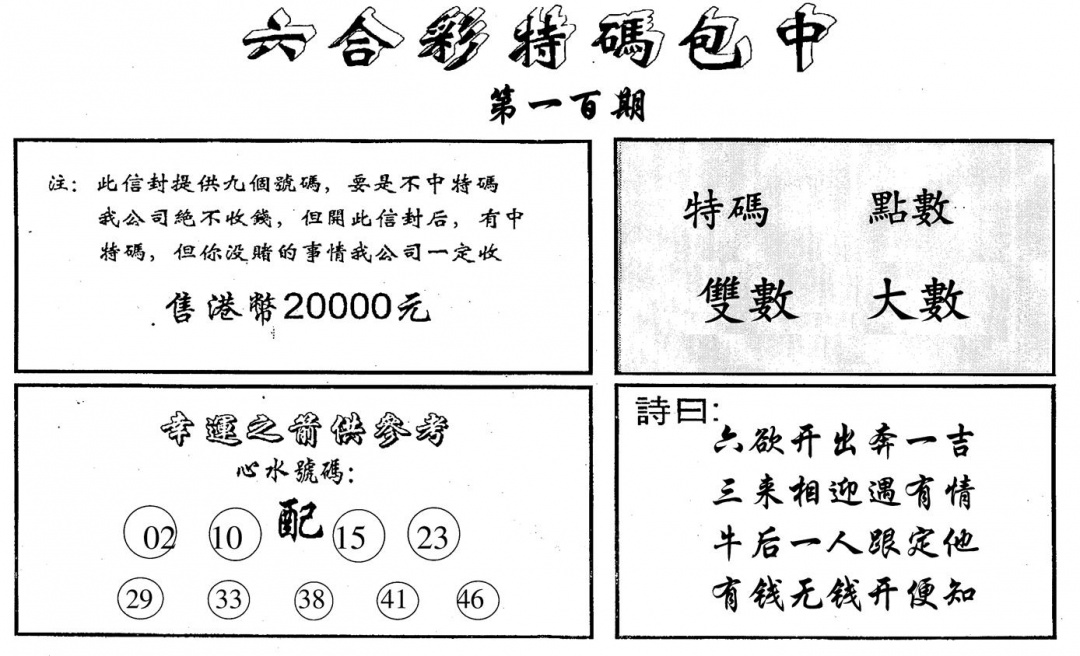 六合彩特碼包中
第一百期
注: 此信封提供九個號碼, 要是不中特碼
我公司絕不收錢, 但開此信封后, 有中
特碼, 但你没賭的事情我公司一定收
售港幣20000元
特碼 點數
雙數 大數
幸運之箭供參考
心水號碼:
配
02 10 15 23
29 33 38 41 46
詩曰:
六欲开出奔一吉
三来相迎遇有情
牛后一人跟定他
有钱无钱开便知